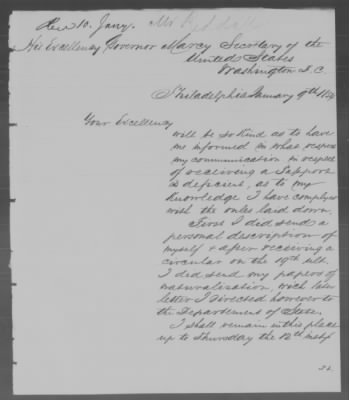 Rec 10. Jany. Mr Riddall
His Excellency Governor Marcy Secretary of the
United States
Washington D.C.
Philadelphia January 9th 1854
Your Excellency
will be so kind as to have
me informed in what respect
my communication in respect
of receiving a Passport
is deficient, as to my
Knowledge I have complyed
with the rules laid down.
First I did send a
personal description of
myself & after receiving a
circular on the 19th ult.
I did send my papers of
naturalisation, wich later
letter I directed however to
the Departement of State.
I shall remain in this place
up to Thursday the 12th inst